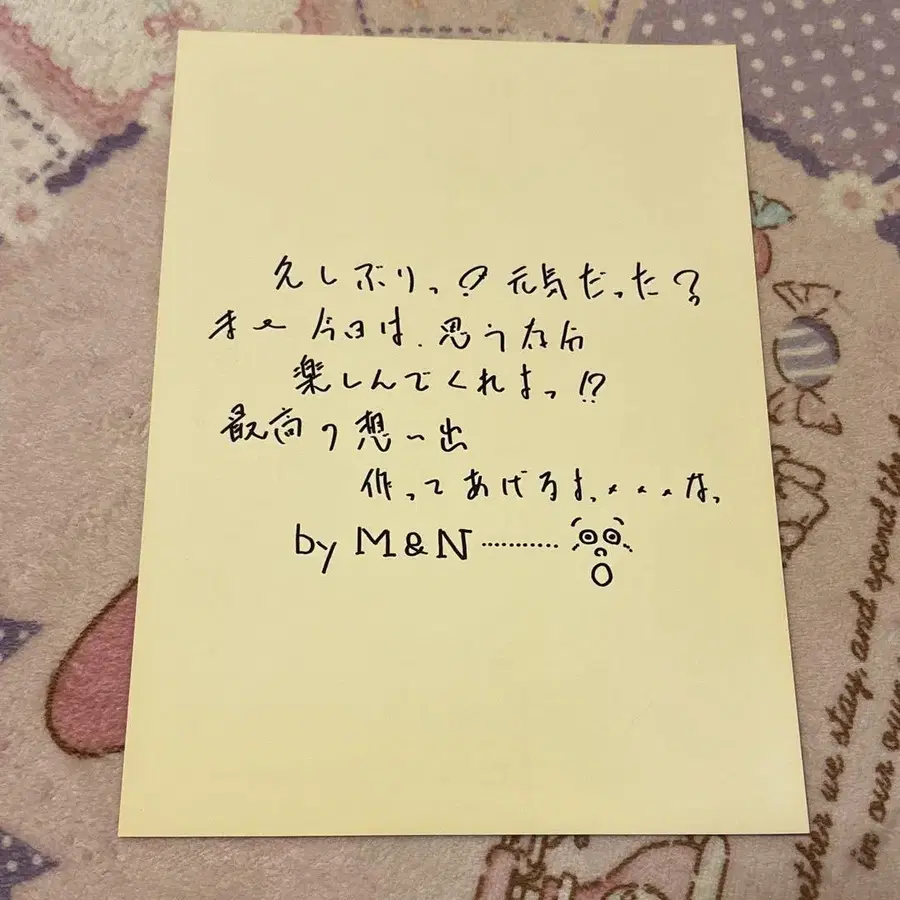 久しぶりっ!?元気だった?
まぁ今日は、思う存分
楽しんでくれよっ!?
最高の想い出
作ってあげるよっ・・・なっ
by M&N
ether we stay, and spend the
in our own